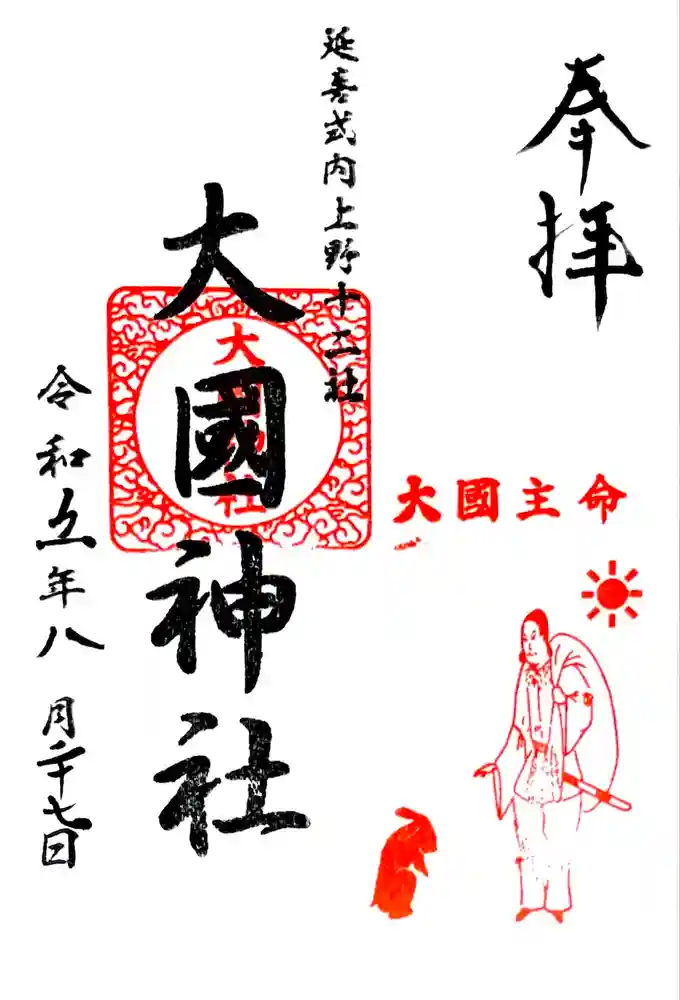 奉拝
大國主命
延喜式内上野十二社
大國神社
大
社
令和五年八月二十七日